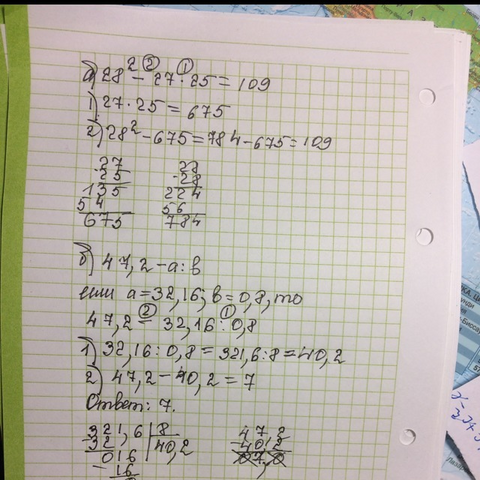 а) 28² - 27 · 25 = 109
② ①
1) 27 · 25 = 675
2) 28² - 675 = 784 - 675 = 109
27 28
· 25 · 28
135 224
54 56
675 784
б) 47,2 - а : в
если а = 32,16; в = 0,8, то
② ①
47,2 - 32,16 : 0,8
1) 32,16 : 0,8 = 321,6 : 8 = 40,2
2) 47,2 - 40,2 = 7
Ответ: 7.
321,6 | 8 47 2
- 32 | 40,2 - 40 2
016 07,0
- 16